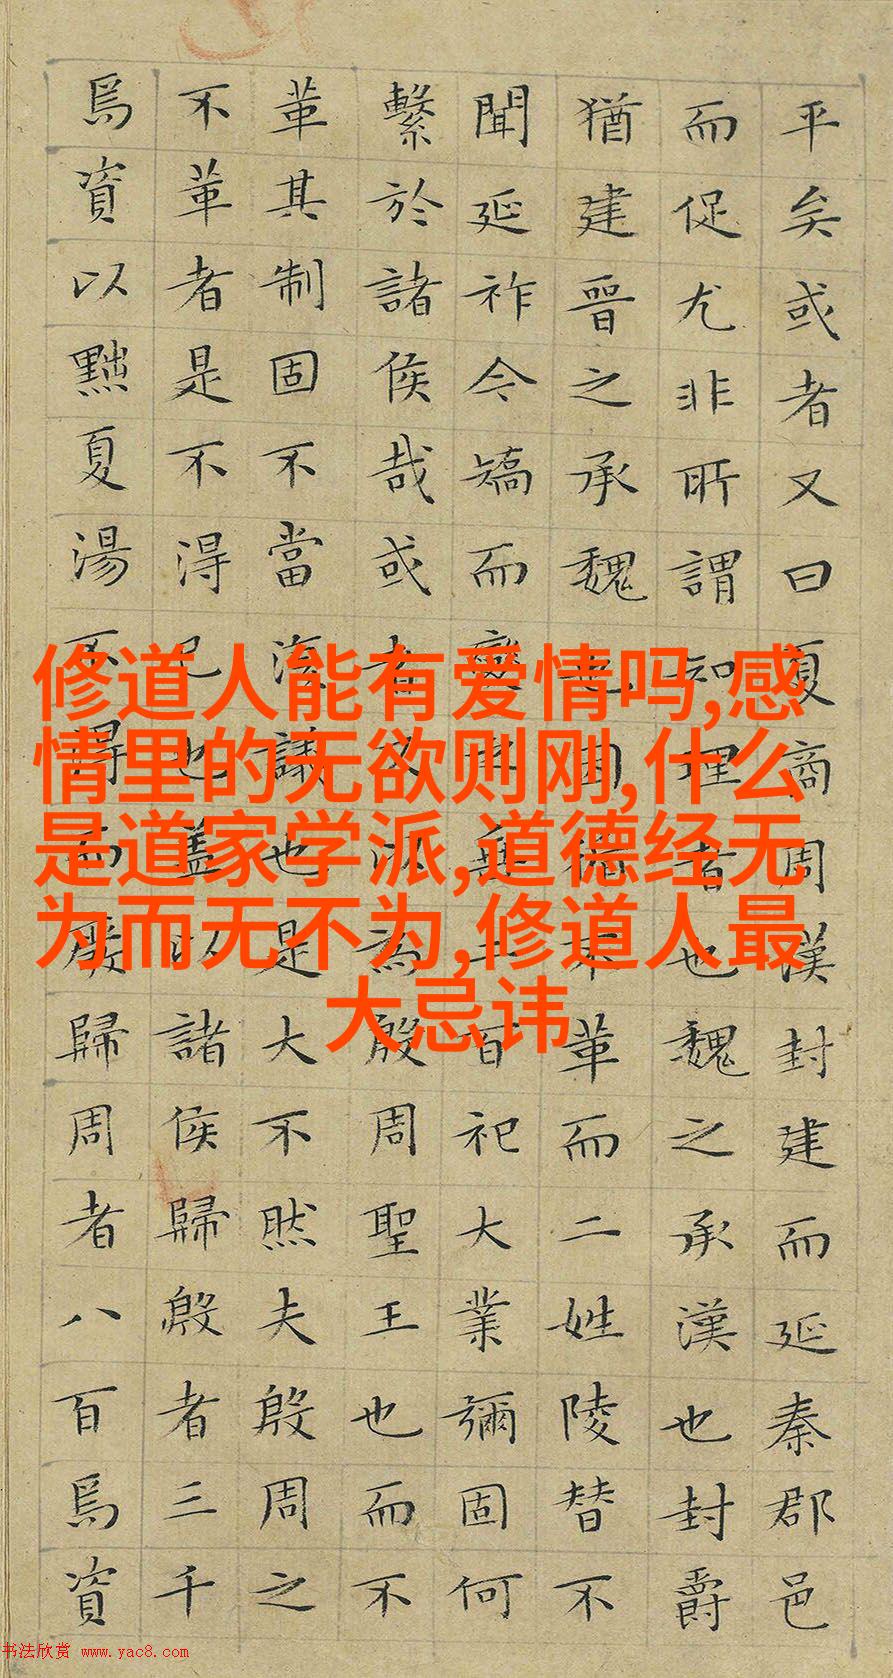 平矣或者又曰夏商周漢封建而延秦郡邑
而促尤非所謂知理者也魏之承漢也封爵
猶建晉之承魏也因循不革而二姓陵替不
聞延祚今矯而變之垂二百祀大業彌固何
繫於諸侯哉或者又以為殷周聖王也而不
革其制固不當復議也是大不然夫殷周之
不革者是不得已也蓋以諸侯歸殷者三千
焉資以黜夏湯不得而廢歸周者八百焉資
修道人能有爱情吗,感
情里的无欲则刚,什么
是道家学派,道德经无
为而无不为,修道人最
大忌讳
书法欣赏 www.yac8.com